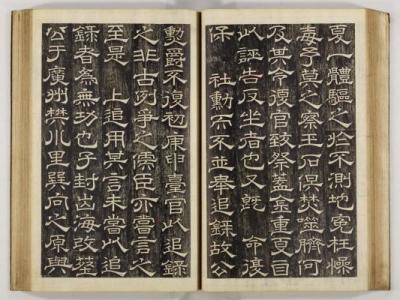 夏一體驅之於不測地寃枉燥
毒予莫之察玉石俱焚噬臍何
及其令復官致祭蓋金重夏目
此誣告反坐者也又旣 命復
保 社勳而不並奉追錄故公
勳爵不復初庚申臺官以追錄
之非古例爭之儒臣亦嘗言之
至是 上追用其言未嘗以追
錄者爲無功也子封海改葬
公于廣州樊川里巽向之原與